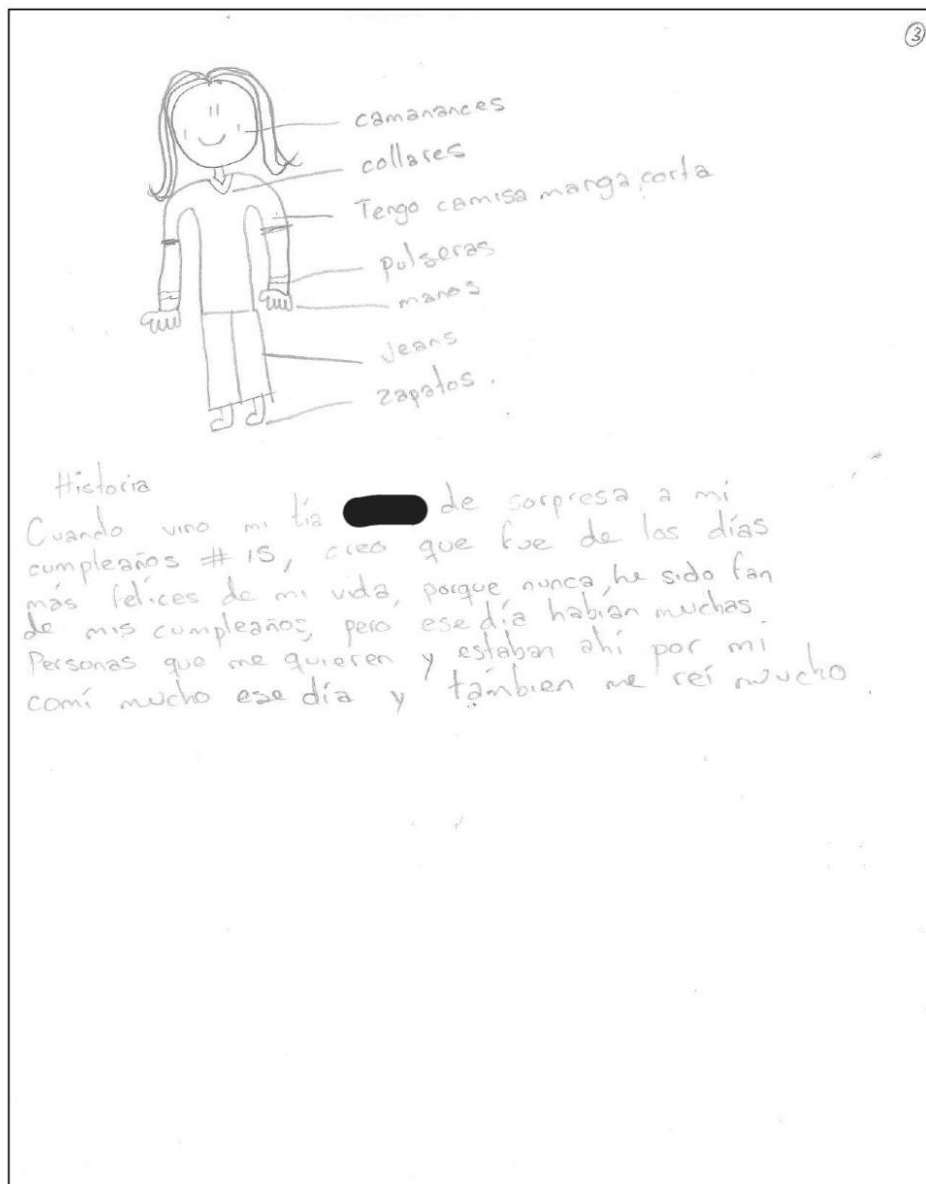 3
camanances
collares
Tengo camisa manga corta
pulseras
manos
Jeans
zapatos.
Historia
Cuando vino mi tía de sorpresa a mi
cumpleaños # 15, creo que fue de los días
más felices de mi vida, porque nunca he sido fan
de mis cumpleaños, pero ese día habían muchas
Personas que me quieren y estaban ahí por mi
comí mucho ese día y támbien me reí mucho.